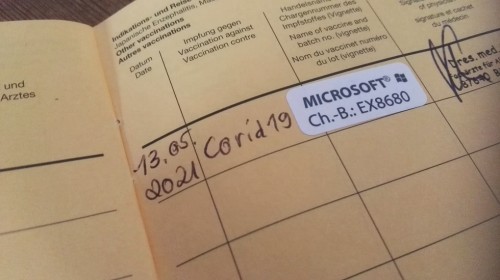 und
Arztes
Indikations- und Reise
Japanische Enzephalitis,
Other vaccinations
Autres vaccinations
Datum
Date
Impfung gegen
Vaccination against
Vaccination contre
Handelsname
Chargennummer des
Impfstoffes (Vignette)
Name of vaccine and
batch no. (vignette)
Nom du vaccinet numéro
du lot (vignette)
of physician
signature et cachet
du médecin
13.05.
2021
Covid 19
MICROSOFT®
Ch.-B.: EX8680